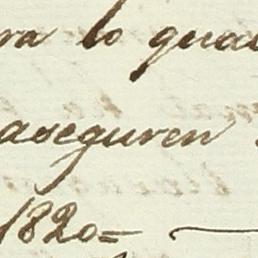 ra lo qual
aseguren
1820=